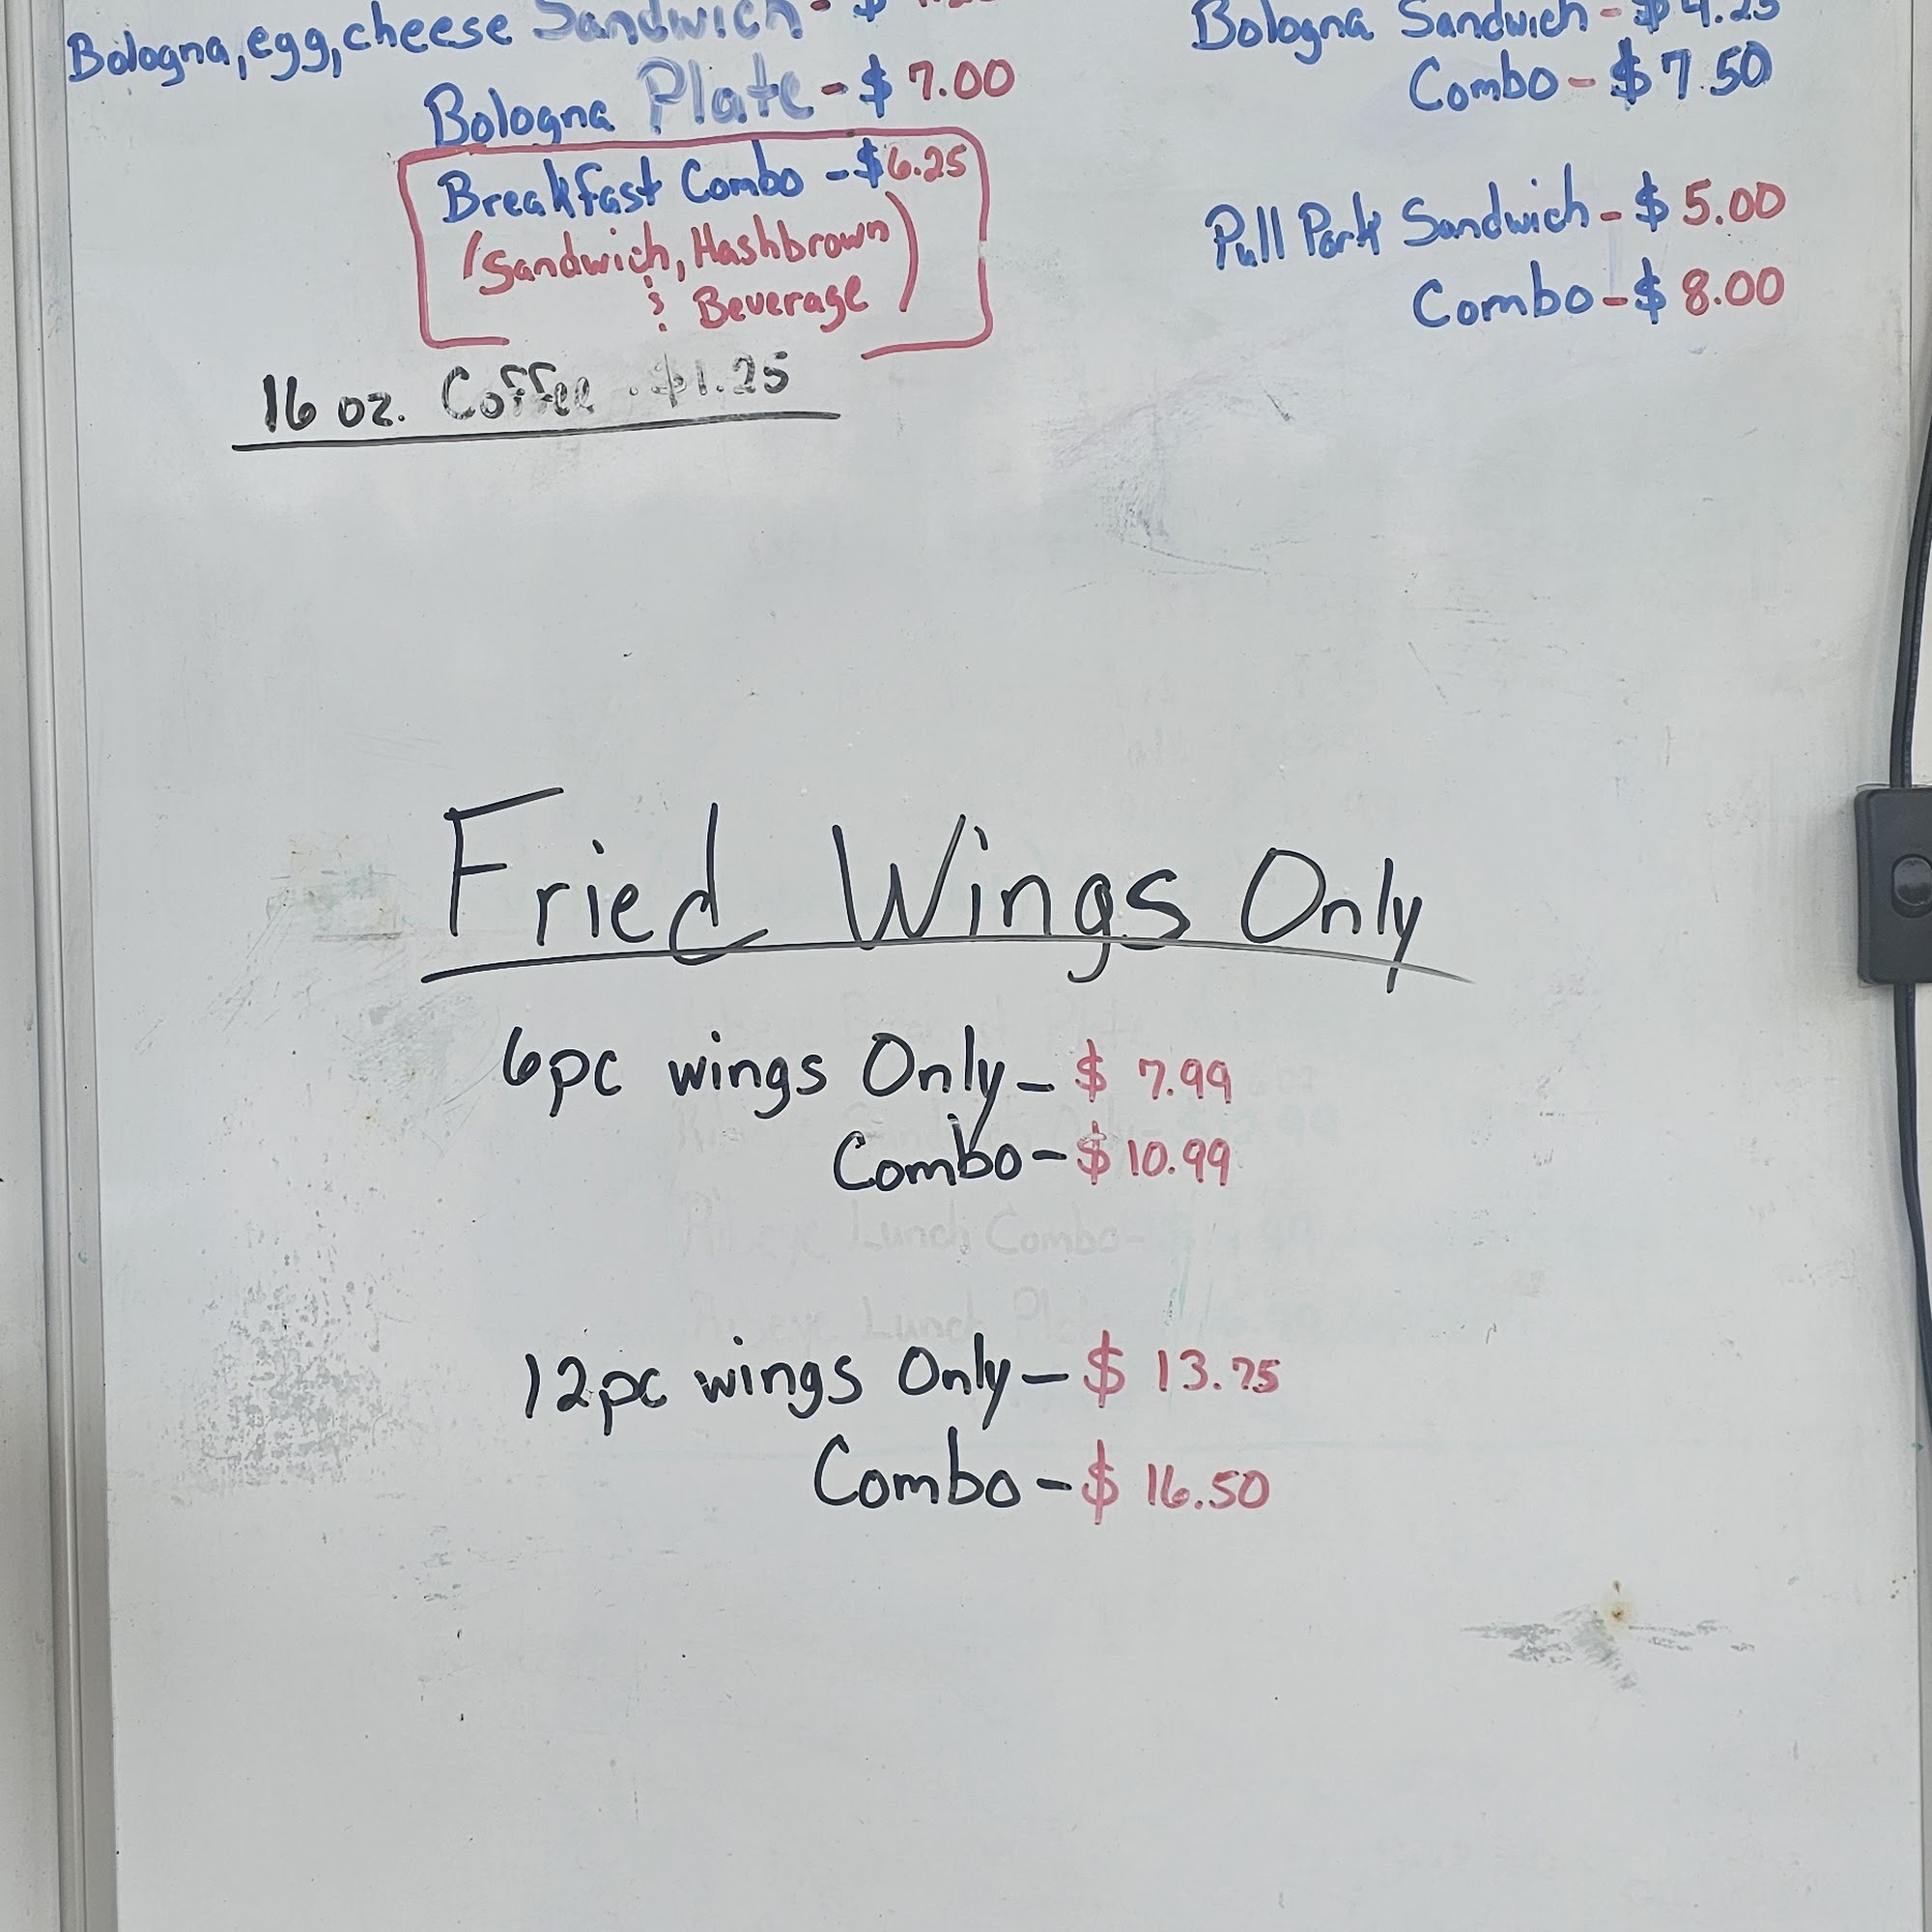 Bologna, egg, cheese Sandwich - $
Bologna Plate - $ 7.00
Breakfast Combo - $6.25
(Sandwich, Hashbrown
& Beverage)
16 oz. Coffee - $1.25
Bologna Sandwich - $4.25
Combo - $7.50
Pull Pork Sandwich - $ 5.00
Combo - $ 8.00
Fried Wings Only
6pc wings Only - $ 7.99
Combo - $ 10.99
Lunch Combo-
Lunch
12pc wings Only - $ 13.75
Combo - $ 16.50